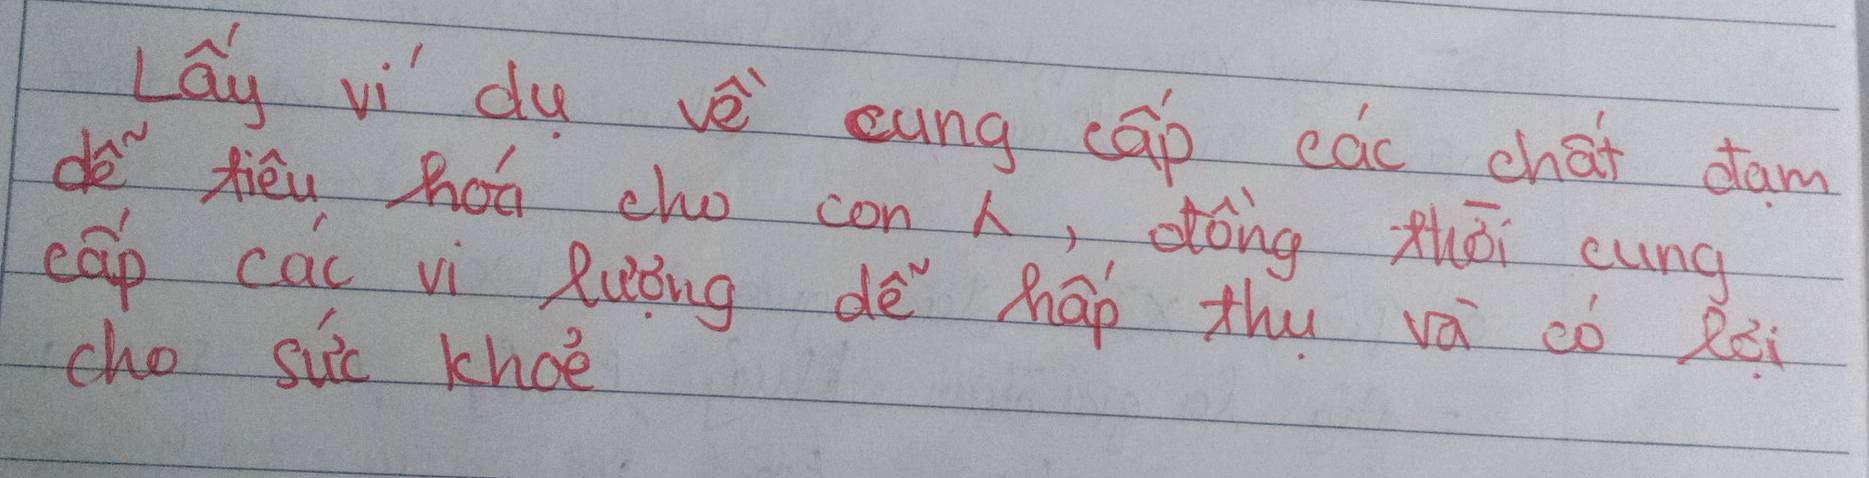 Lấy ví dụ về cung cấp các chất đạm
dễ tiêu hoá cho con λ, đồng thời cung
cấp các vi lượng dễ hấp thụ và có lợi
cho sức khoẻ